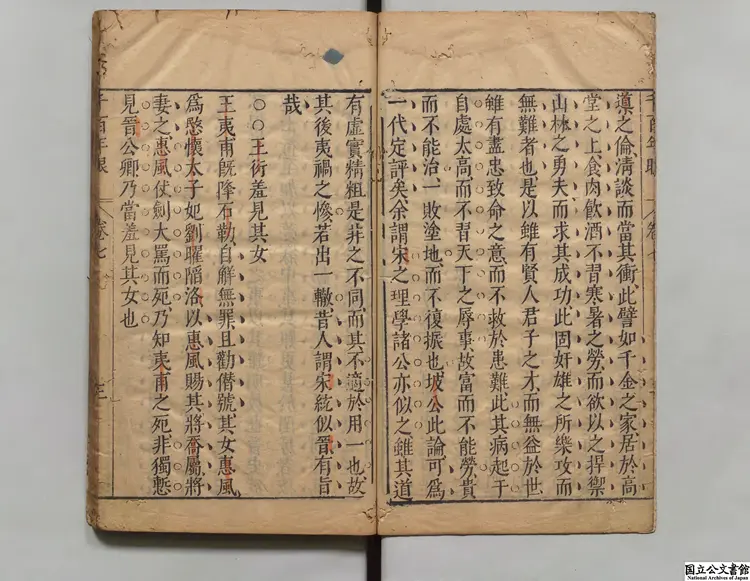 千百年眼
卷七
導之倫清談而當其衝此譬如千金之家居於高
堂之上食肉飲酒不習寒暑之勞而欲以之捍禦
山林之勇夫而求其成功此固奸雄之所樂攻而
無難者也是以雖有賢人君子之才而無益於世
雖有盡忠致命之意而不救於患難此其病起于
自處太高而不習天下之辱事故富而不能勞貴
而不能治一敗塗地而不復振也坡公此論可爲
一代定評矣余謂宋之理學諸公亦似之雖其道
有虛實精粗是非之不同而其不適於用一也故
其後夷禍之慘若出一轍昔人謂宋統似晉有旨
哉
○○王衍羞見其女
王夷甫旣降石勒自觧無罪且勸僭號其女惠風
爲愍懷太子妃劉曜陷洛以惠風賜其將喬屬將
妻之惠風仗劍大罵而死乃知夷甫之死非獨慙
見晉公卿乃當羞見其女也
千百年眼
卷七
三
国立公文書館
National Archives of Japan